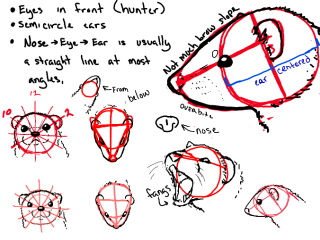 • Eyes in front (hunter)
• Semicircle ears
• Nose → Eye → Ear is usually
a straight line at most
angles.
Not much brow slope
ear centered
overbite
From
below
12
10
2
nose
fangs